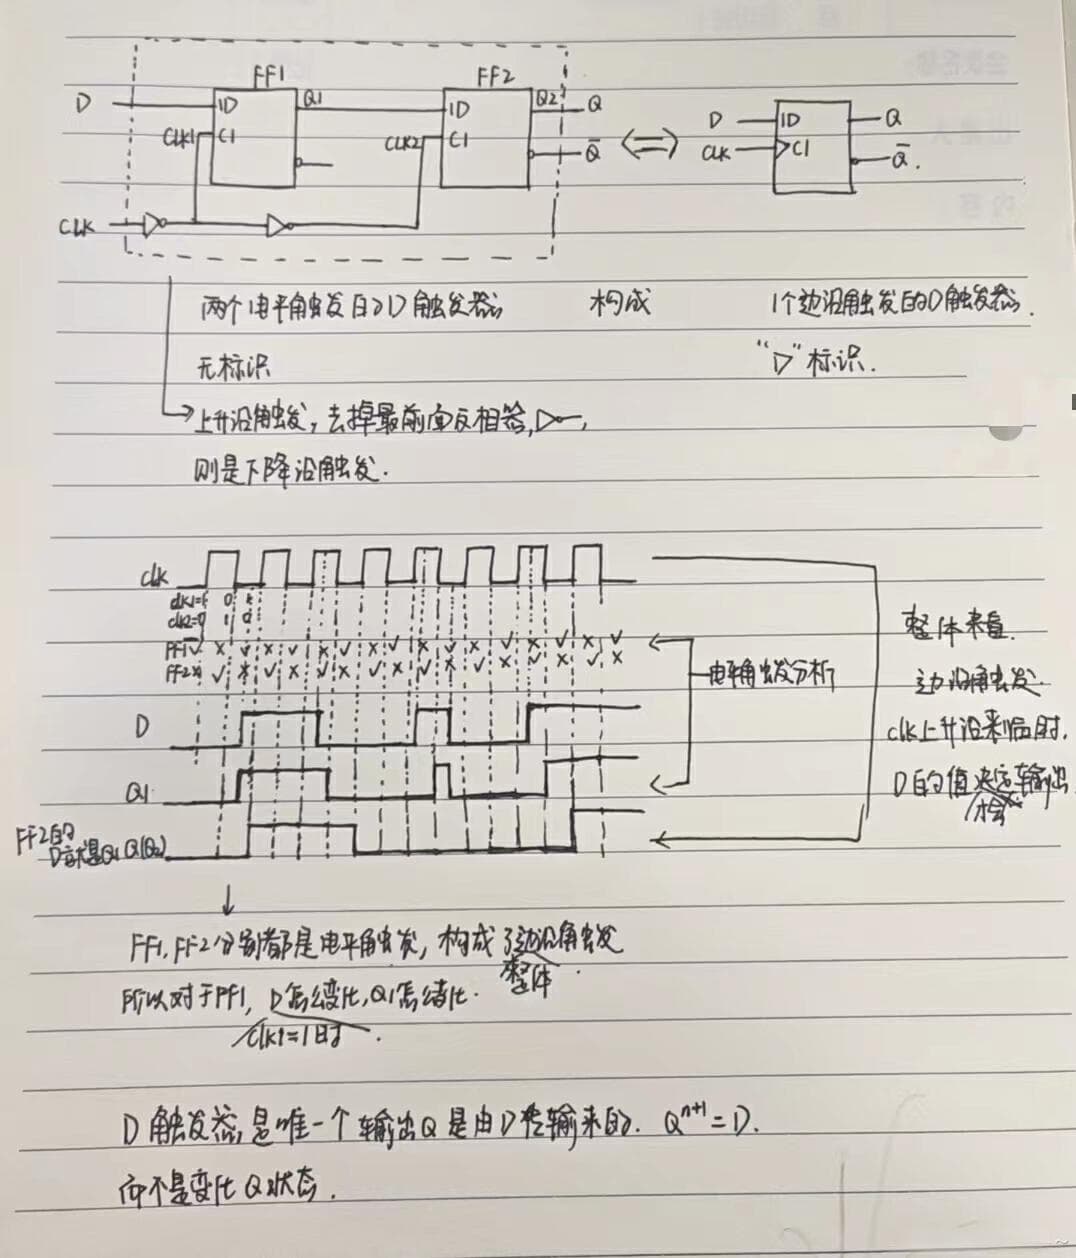 FF1 FF2
D 1D Q1 1D Q2 Q D 1D Q
CLK1 C1 CLK2 C1 Q̅ CLK C1 Q̅.
CLK
两个电平触发的D触发器 构成 1个边沿触发的D触发器.
无标识 “▷”标识.
上升沿触发,去掉最前面反相器,
则是下降沿触发.
clk
clk1=1 0 1
clk2=0 1 0
FF1 ✓ × ✓ × ✓ × × ✓ × ✓ × ✓ × ✓ × ✓
FF2 × ✓ × ✓ × ✓ × ✓ × ✓ × × ✓ × ✓ ×
整体来看
电平触发分析
边沿触发.
D
clk上升沿来临时,
Q1
D的值决定输出
才会
FF2的
D就是Q1 Q(Q2)
FF1,FF2分别都是电平触发,构成了边沿触发
整体.
所以对于FF1,D怎么变化,Q1怎么变化.
clk1=1时.
D触发器,是唯一个输出Q是由D传输来的. Qⁿ⁺¹=D.
而不是变化Q状态.